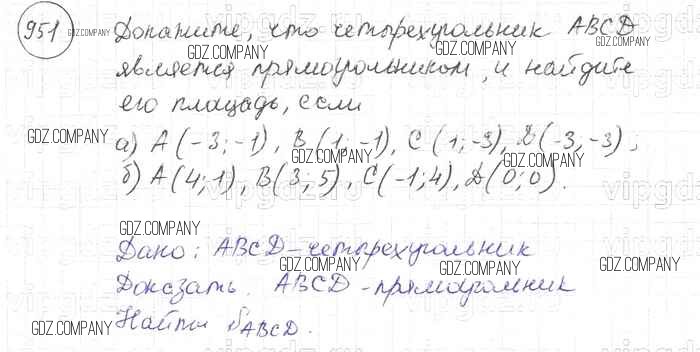 951 Докажите, что четырехугольник ABCD
является прямоугольником, и найдите
его площадь, если
а) A(-3;-1), B(1;-1), C(1;-3), D(-3;-3);
б) A(4;1), B(3;5), C(-1;4), D(0;0).
Дано: ABCD-четырехугольник
Доказать: ABCD-прямоугольник
Найти SABCD.
GDZ.COMPANY
GDZ.COMPANY
GDZ.COMPANY
GDZ.COMPANY
GDZ.COMPANY
GDZ.COMPANY
GDZ.COMPANY
GDZ.COMPANY
GDZ.COMPANY
GDZ.COMPANY
GDZ.COMPANY
GDZ.COMPANY
GDZ.COMPANY